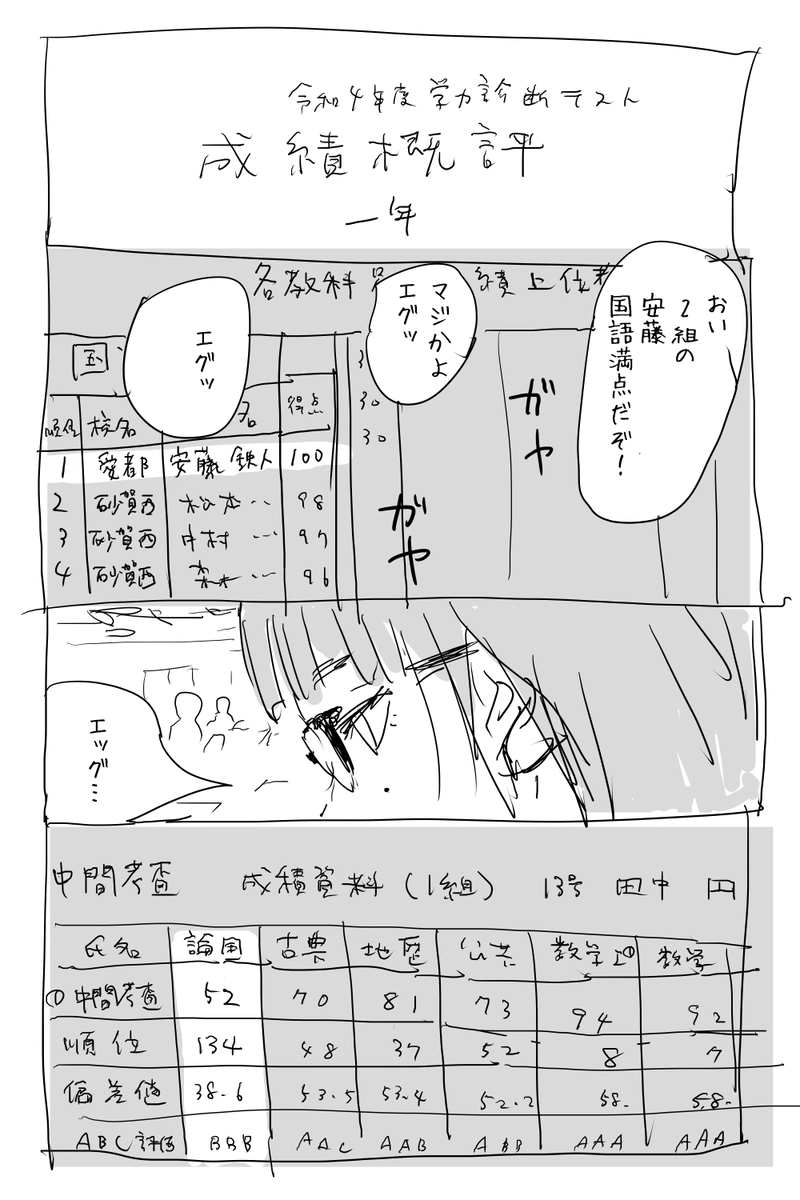 令和4年度 学力診断テスト
成績概評
一年
各教科
績上位者
おい
2組の
安藤
国語満点だぞ!
マジかよ
エグッ
エグッ
ガヤ
ガヤ
国
順位 校名 名 得点
1 愛都 安藤 鉄人 100
2 砂賀西 松本… 98
3 砂賀西 中村 … 97
4 砂賀西 森… 96
30
30
エッグ…
中間考査 成積資料(1組) 13号 田中 円
氏名 論国 古典 地歴 公共 数学I① 数学
①中間考査 52 70 81 73 94 92
順位 134 48 37 52 8 7
偏差値 38.6 53.5 53.4 52.2 58. 58.
ABC評価 BBB AAC AAB ABB AAA AAA